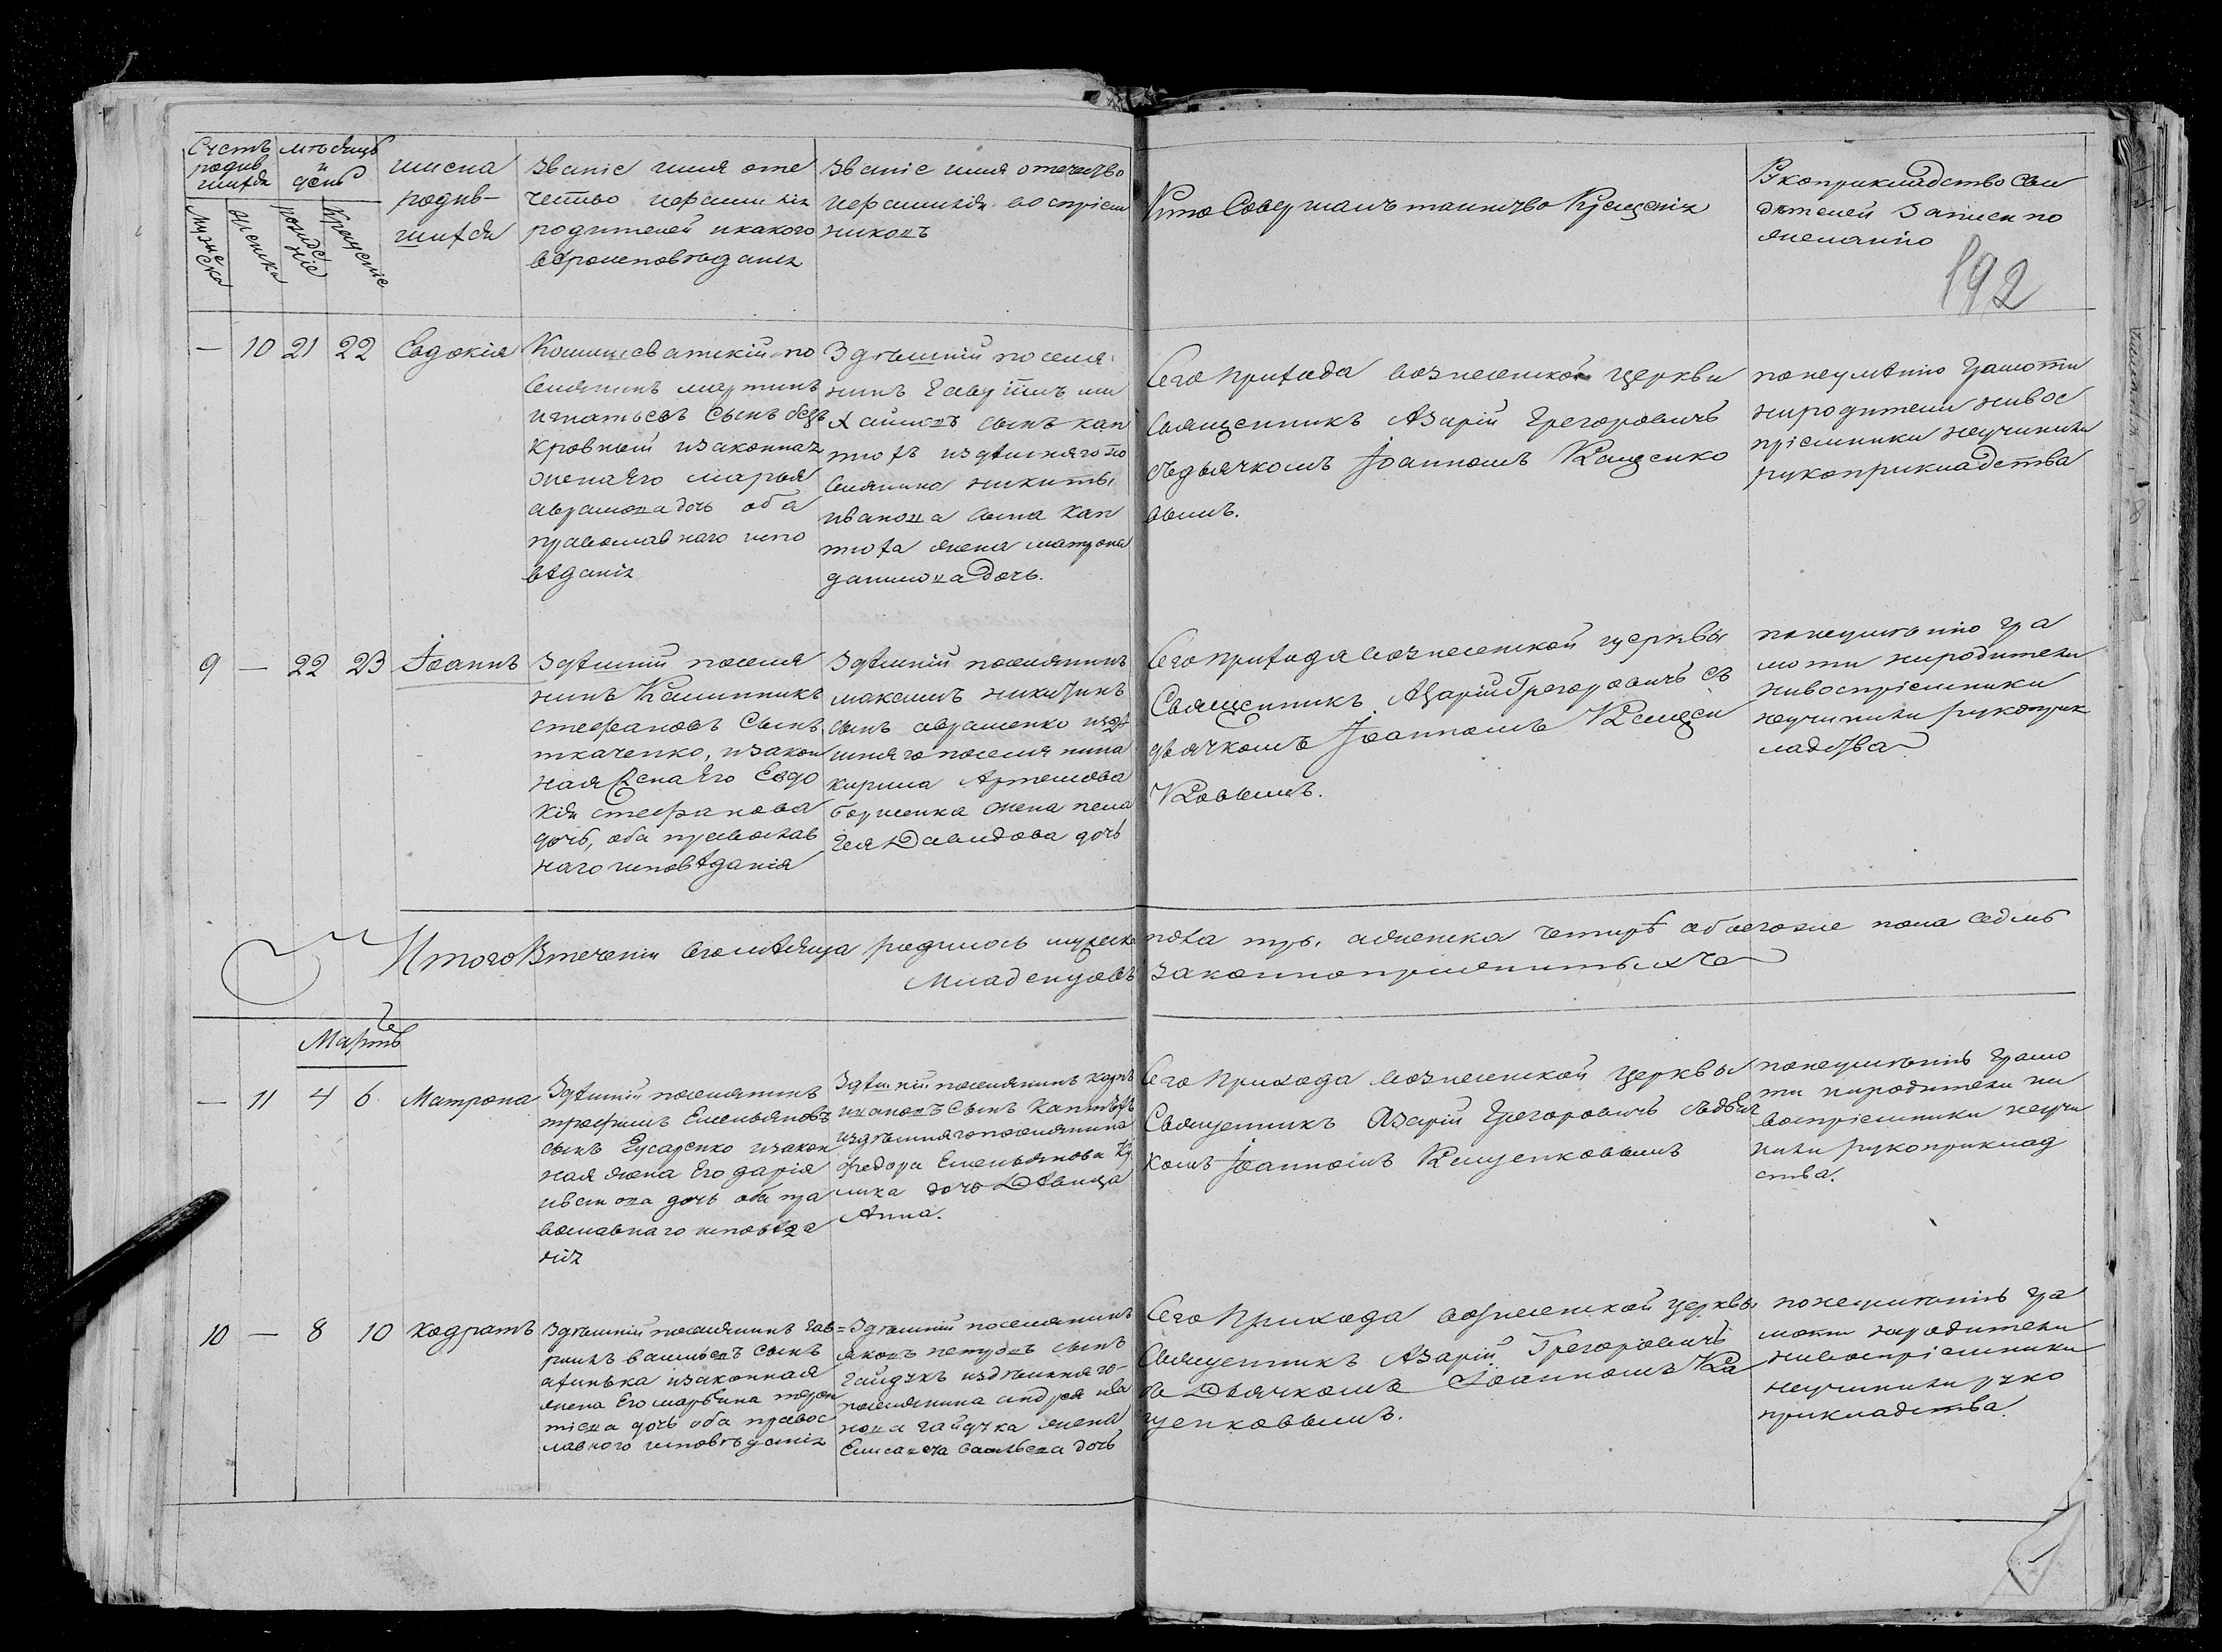 Счетъ родив шихся
мѣсяцъ и день
мужеска
женска
рожде ніе
Крещеніе
имена
родив-
шихся
званіе имя оте
чество
родителей икакого
вѣроисповѣданія
званіе имя отечество
ифамилія воспріем
никовъ
Кто Совершалъ таинство Крещенія
Рукоприкладство сви
дѣтелей записи по
желанію
192
— 10 21 22
Евдокія
по
селянинъ мартинъ
игнатьевъ сынъ
кровный изаконная
жена его марья
аврамова дочь оба
православнаго испо
вѣданія
Здѣшній поселя
нинъ Гавріилъ ми
хайловъ сынъ кап
тюхъ издѣшняго по
селянина никиты
иванова сына кап
тюха жена матрона
данилова дочь.
Сего прихода вознесенской церкви
священникъ Азарій Грегоровичъ
съдьячкомъ Іоанномъ Кащенко
вымъ.
понеумѣнію грамоти
ниродители нивос
пріемники неучинили
рукоприкладства
9 — 22 23
Іоаннъ
Здѣшній поселя
нинъ Каллинникъ
стефановъ Сынъ
ткаченко, изакон
ная жена его Евдо
кія стефанова
дочь, оба православ
наго исповѣданія
Здѣшній поселянинъ
максимъ никитинъ
сынъ авраменко издѣ
шняго поселянина
кирила Артемова
жена пела
гея Давидова дочь
Сего прихода вознесенской церквы
Священникъ Азарій Грегоровичъ съ
дьячкомъ Іоанномъ Кащен
ковымъ.
понеумѣнію гра
моти ниродители
нивоспріемники
неучинили рукоприк
ладства
Итого Втеченіи сего мѣсяца родилось мужеска пола три, аженска четирѣ обоегоже пола седмь
младенцовъ законноприжитыхъ
Мартъ
— 11 4 6
Матрона
Здѣшній поселянинъ
трофимъ Емельяновъ
сынъ Гусаренко изакон
ная жена Его дарія
иванова дочь оба пра
вославнаго исповѣда
нія
Здѣшній поселянинъ
ивановъ сынъ каптюхъ
издѣшняго поселянина
федора Емельянова
дочь Дѣвица
Анна.
Сего Прихода вознесенской церквы
Священникъ Азарій Грегоровичъ съдьяч
комъ Іоанномъ Кащенковымъ
понеумѣнію грамо
ти ниродители ни
воспріемники неучи
нили рукоприклад
ства.
10 — 8 10
кодратъ
Здѣшній поселянинъ гав
рилъ васильевъ сынъ
изаконная
жена Его терен
тіева дочь оба правос
лавного исповѣданія
Здѣшній поселянинъ
яковъ петровъ сынъ
гайдукъ издѣшняго
поселянина андрея ива
нова гайдука жена
васильева дочь
Сего Прихода вознесенской церквы
Священникъ Азарій Грегоровичъ
съ Дьячкомъ Іоанномъ Ка
щенковымъ.
понеумѣнію гра
моти ниродители
нивоспріемники
неучинили руко
прикладства.